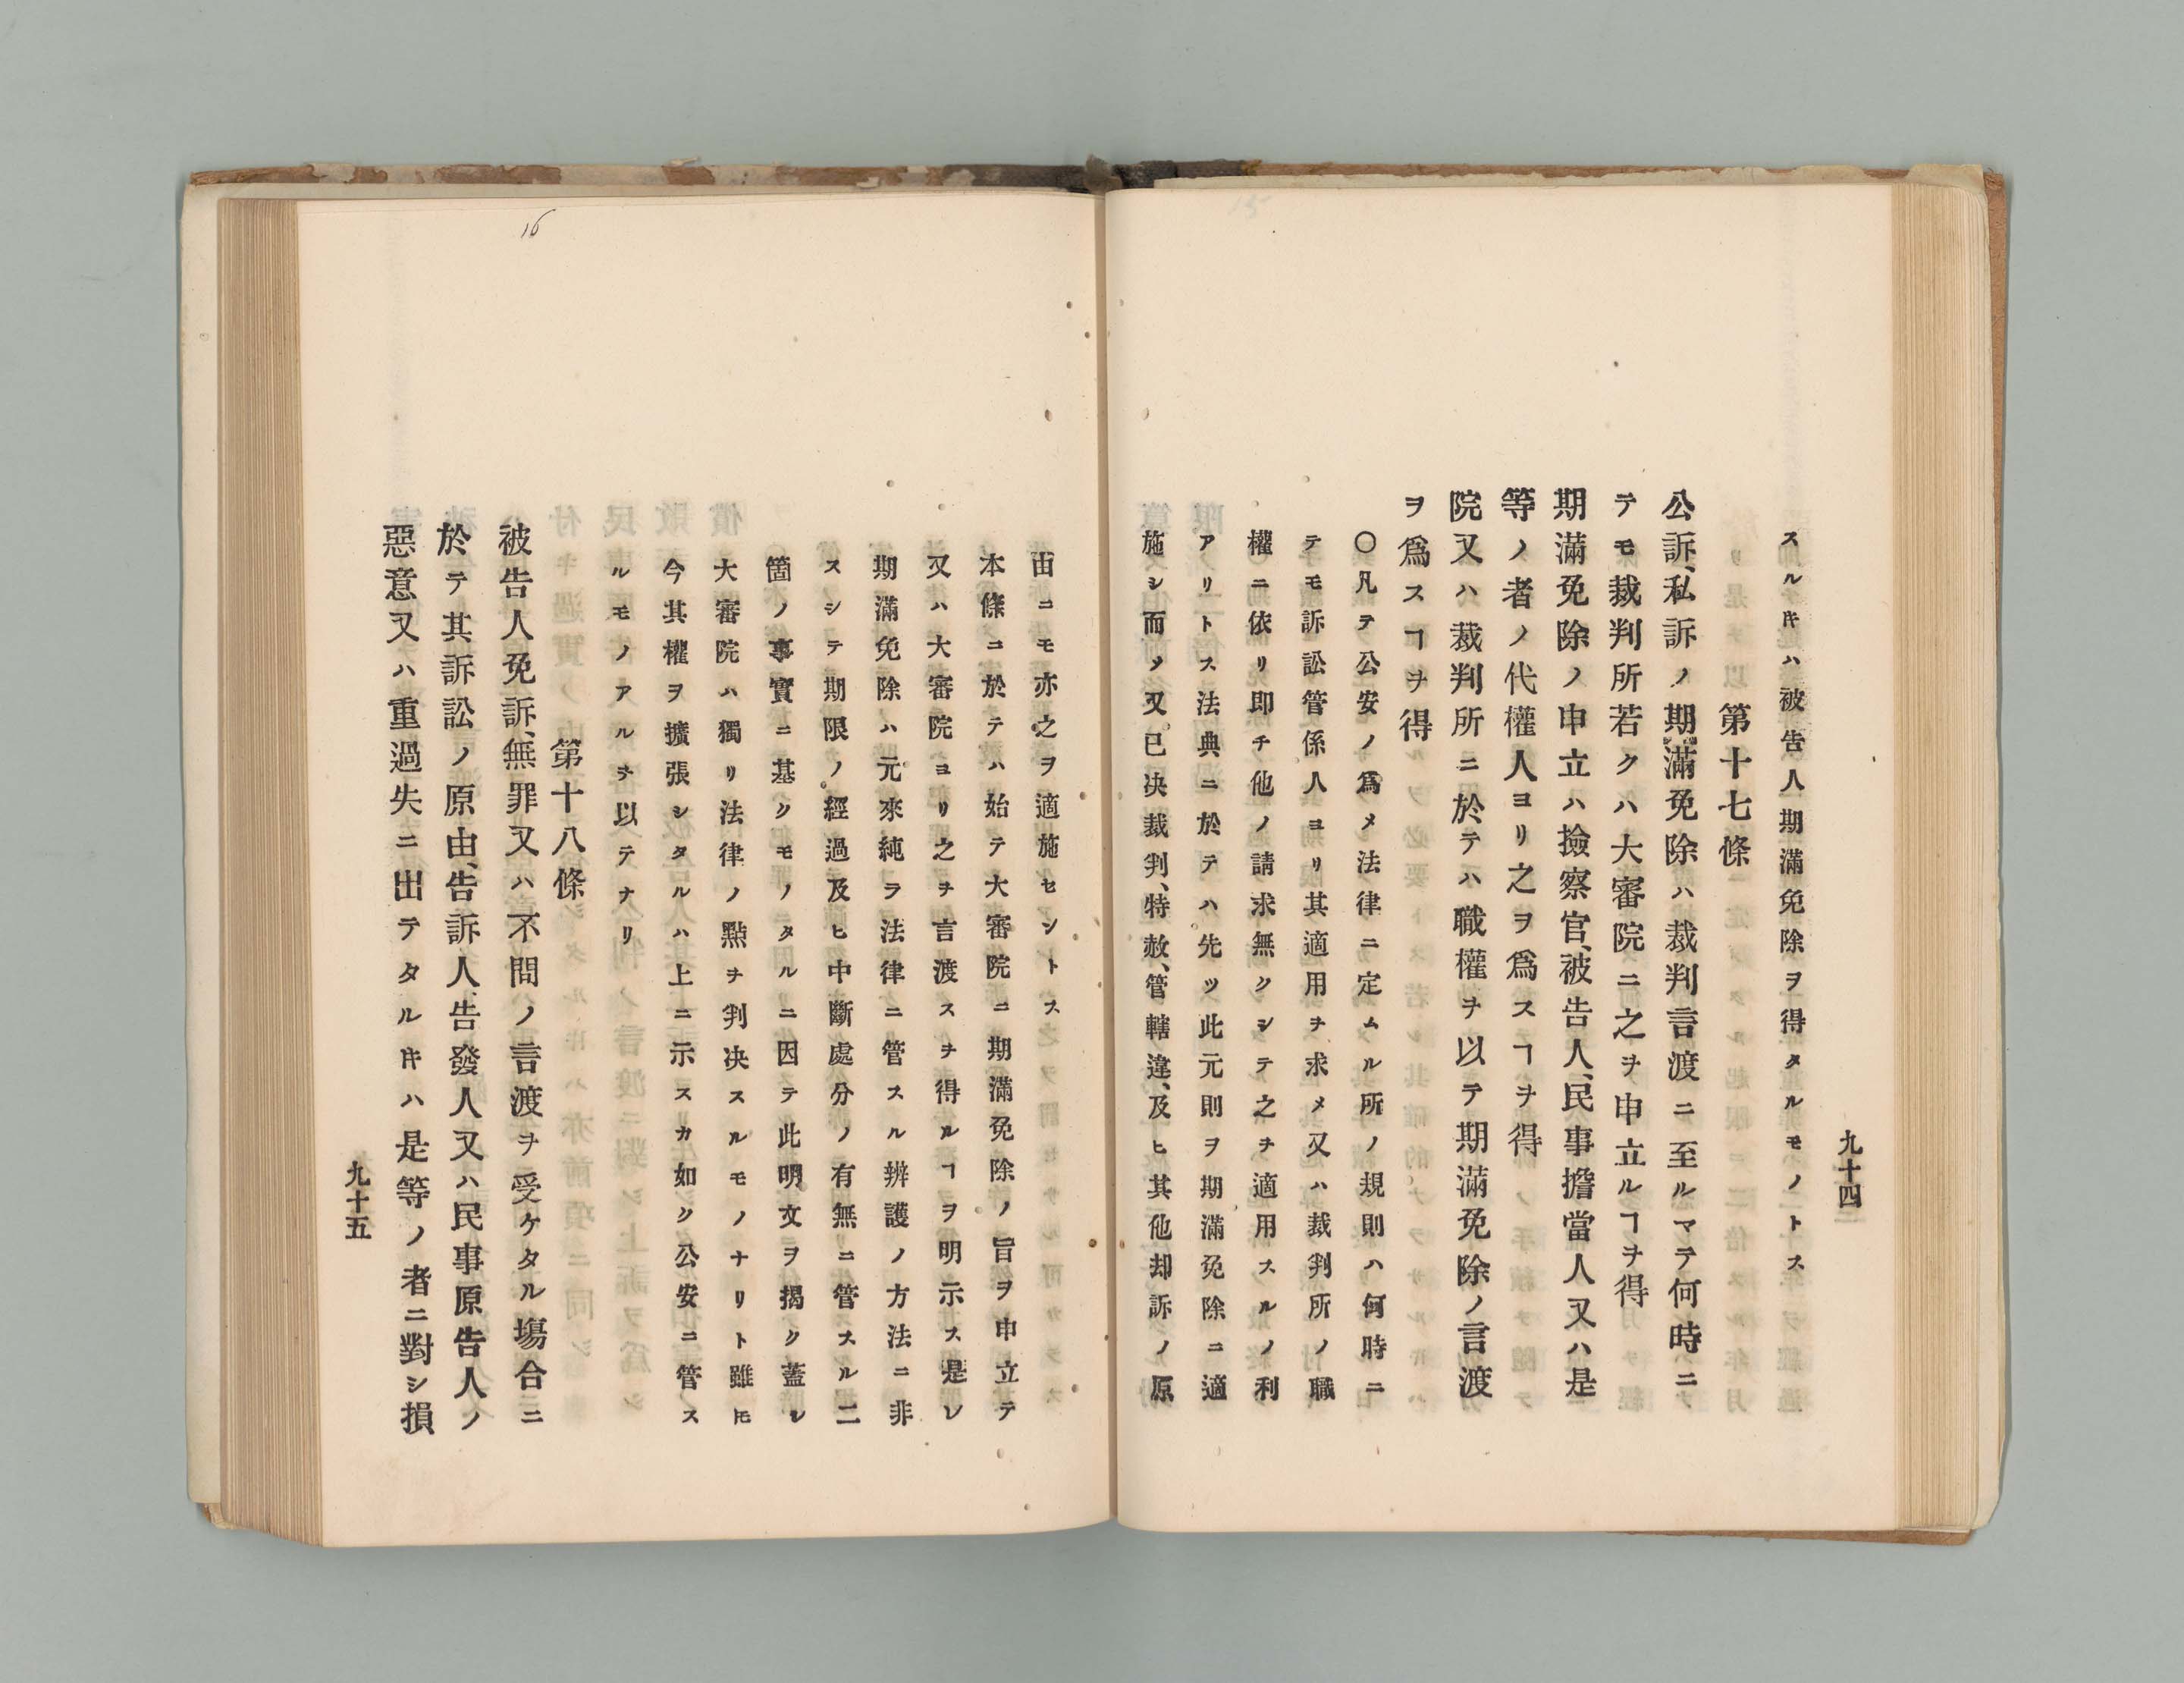 九十四
スルヰハ被告人期滿免除ヲ得タルモノトス
第十七條
公訴、私訴ノ期滿免除ハ裁判言渡ニ至ルマテ何時ニ
テモ裁判所若クハ大審院ニ之ヲ申立ルヿヲ得
期滿免除ノ申立ハ撿察官、被告人、民事擔當人又ハ是
等ノ者ノ代權人ヨリ之ヲ爲スヿヲ得
院又ハ裁判所ニ於テハ職權ヲ以テ期滿免除ノ言渡
ヲ爲スヿヲ得
〇凡テ公安ノ爲メ法律ニ定ムル所ノ規則ハ何時ニ
テモ訴訟管係人ヨリ其適用ヲ求メ又ハ裁判所ノ職
權ニ依リ即チ他ノ請求無クシテ之ヲ適用スルノ利
アリトス法典ニ於テハ先ツ此元則ヲ期滿免除ニ適
施シ而ノ又已决裁判、特赦、管轄違、及ヒ其他却訴ノ原
由ニモ亦之ヲ適施セントス
本條ニ於テハ始テ大審院ニ期滿免除ノ旨ヲ申立テ
又ハ大審院ヨリ之ヲ言渡スヲ得ルヿヲ明示ス是レ
期滿免除ハ元來純ラ法律ニ管スル辨護ノ方法ニ非
スシテ期限ノ經過及ヒ中斷處分ノ有無ニ管スル二
箇ノ事實ニ基クモノタルニ因テ此明文ヲ揭ク蓋シ
大審院ハ獨リ法律ノ點ヲ判决スルモノナリト雖𪜈
今其權ヲ擴張シタルハ上ニ示スカ如ク公安ニ管ス
ルモノアルヲ以テナリ
第十八條
被告人免訴、無罪又ハ不問ノ言渡ヲ受ケタル塲合ニ
於テ其訴訟ノ原由、告訴人、告發人又ハ民事原告人ノ
惡意又ハ重過失ニ出テタルヰハ是等ノ者ニ對シ損
九十五
16